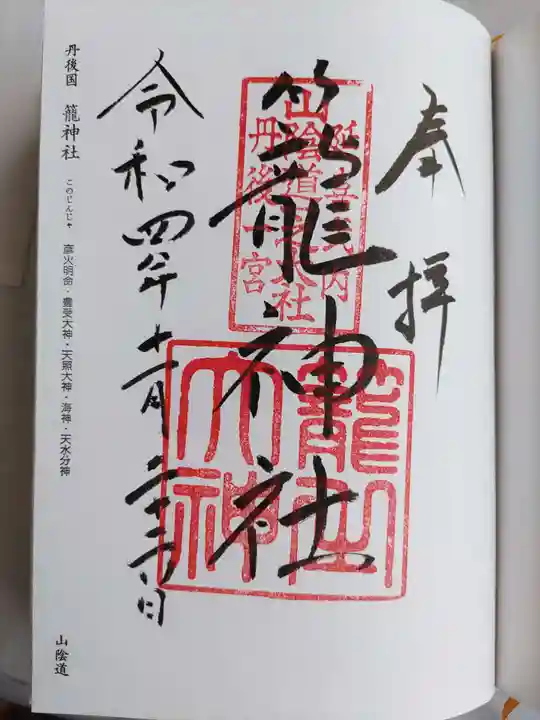 奉拝
延喜式内
山陰道一之大社
丹後一宮
籠神社
籠之大神
令和四年十一月二十三日
丹後国 籠神社 このじんじゃ 彦火明命・豊受大神・天照大神・海神・天水分神
山陰道